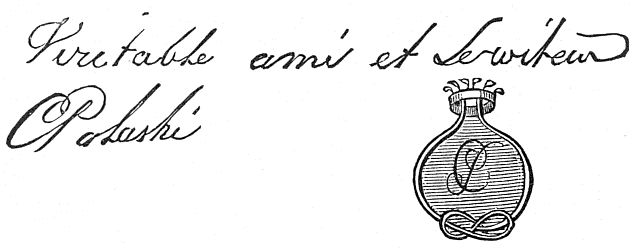 Veritable ami et Serviteur
CPolaski